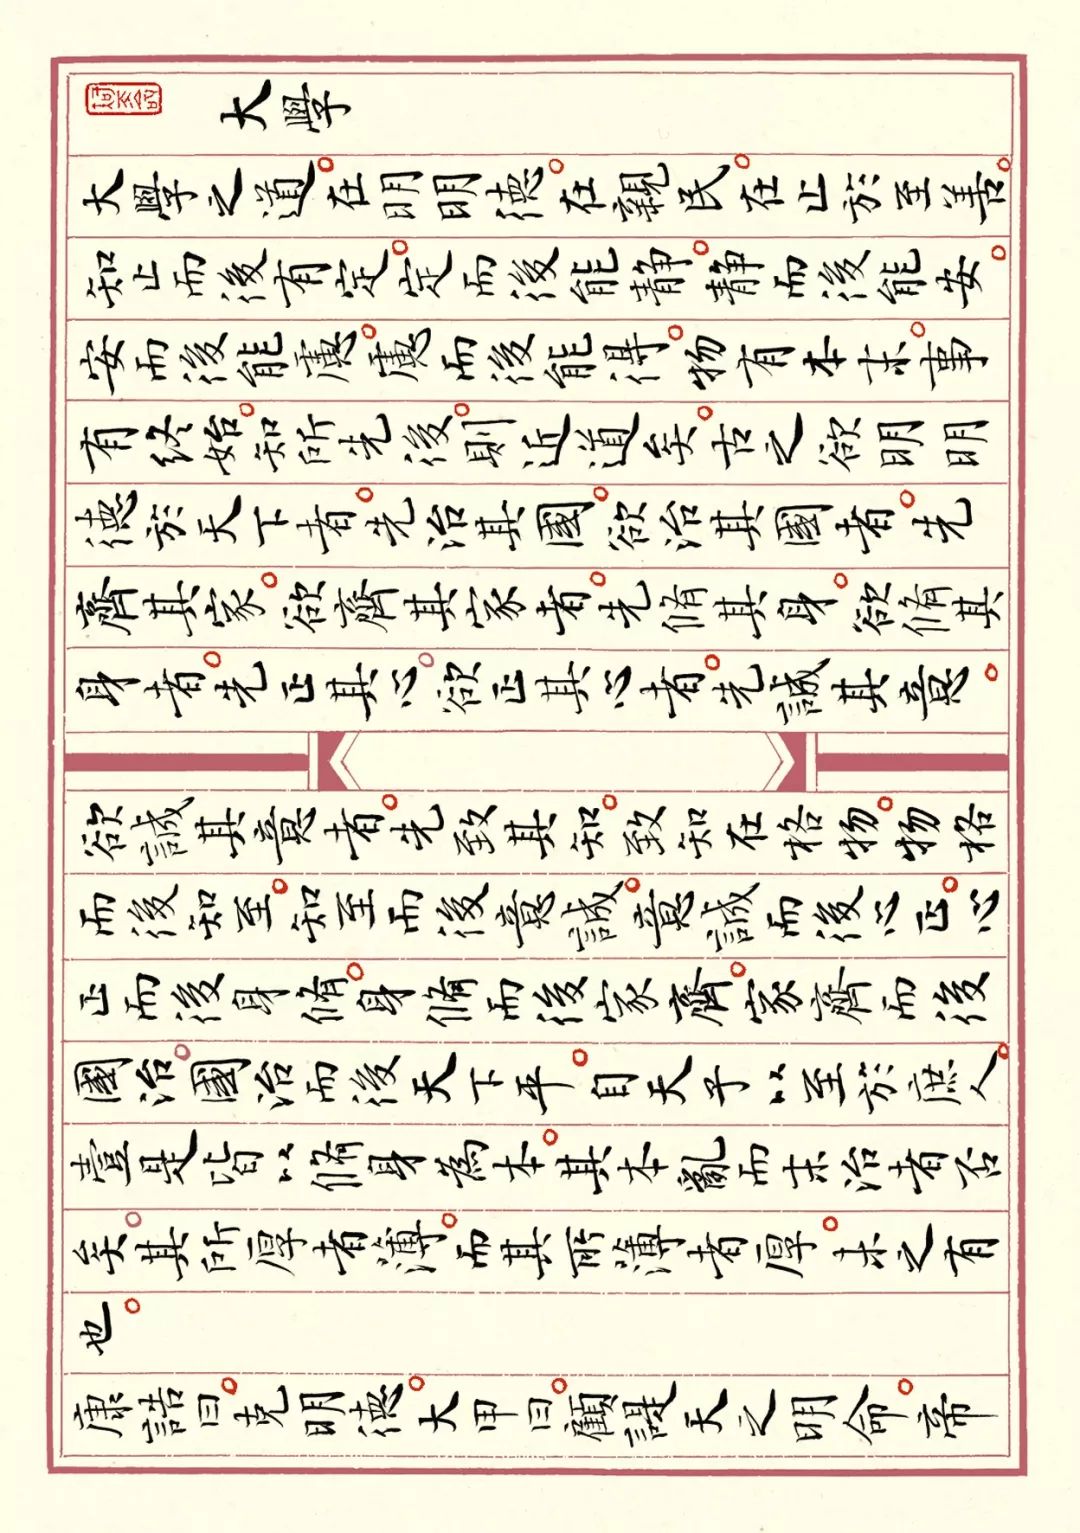 大學
大學之道。在明明德。在親民。在止於至善。
知止而後有定。定而後能静。静而後能安。
安而後能慮。慮而後能得。物有本末。事
有終始。知所先後。則近道矣。古之欲明明
德於天下者。先治其國。欲治其國者。先
齊其家。欲齊其家者。先脩其身。欲脩其
身者。先正其心。欲正其心者。先誠其意。
欲誠其意者。先致其知。致知在格物。物格
而後知至。知至而後意誠。意誠而後心正。心
正而後身脩。身脩而後家齊。家齊而後
國治。國治而後天下平。自天子以至於庶人。
壹是皆以脩身為本。其本亂而末治者否
矣。其所厚者薄。而其所薄者厚。未之有
也。
康誥曰。克明德。大甲曰。顧諟天之明命。帝